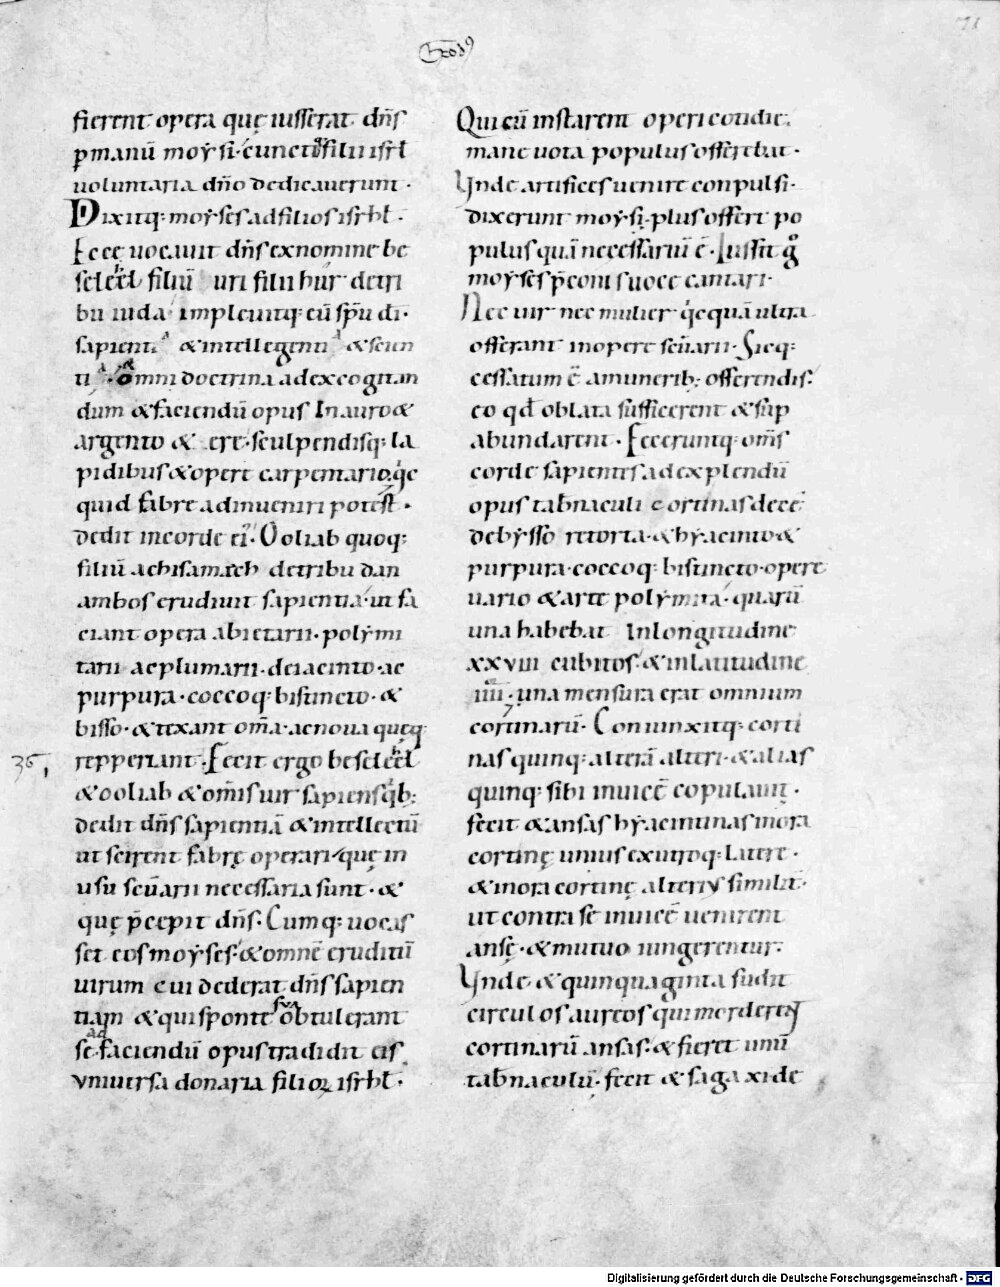 71
Exod9
fierent opera quę iusserat dn̄s
ꝑmanū moẏsi· cuncti filii isrl̄
uoluntaria dn̄o dedicauerunt·
Dixitq: moẏses adfilios isrhl̄·
Ecce uocauit dn̄s exnomine be
seleel filiū uri filii hur detri
bu iuda· impleuitq: eū sp̄u dī·
sapientia & intellegentia & scien
tia· & omni doctrina adexcogitan
dum & faciendū opus In auro &
argento & ere· sculpendisq: la
pidibus & opere carpentario· q̇c
quid fabre adinueniri potest·
dedit incorde ei'· Ooliab quoq:
filiū achisamech detribu dan
ambos erudiuit sapientia· ut fa
ciant opera abietarii· polẏmi
tarii ac plumarii· deiacinto· ac
purpura· coccoq: bistincto· &
bisso· & texant om̄a· ac noua quęq
repperiant· Fecit ergo beseleel
36,
& ooliab & om̄is uir sapiens q'b:
dedit dn̄s sapientiā & intellectū
ut scirent fabrę operari· quę in
usu scūarii necessaria sunt· &
quę p̄cepit dn̄s· Cumq: uocas
set eos moẏses· & omnē eruditū
uirum cui dederat dn̄s sapien
tiam & qui sponte sua obtulerant
se ad faciendū opus tradidit eis
vniuersa donaria filioꝝ isrhl̄·
Qui cū instarent operi cotidie·
mane uota populus offerebat·
Vnde artifices uenire conpulsi·
dixerunt moẏsi· plus offert po
pulus quā necessariū ē· Iussit g°
moẏses p̄conis uoce cantari·
Nec uir nec mulier q'cquā ultra
offerant inopere scūarii· Sicq:
cessatum ē amunerib: offerendis·
eo qd̄ oblata sufficerent & sup̄
abundarent· Feceruntq: om̄s
corde sapientes adexplendū
opus tab̄naculi cortinas decē
debẏsso retorta· & hẏacinto &
purpura· coccoq: bistincto· opere
uario & arte polẏmita· quarū
una habebat Inlongitudine
xxviii cubitos· & inlatitudine
iiii· una mensura erat omnium
cortinarū· Coniunxitq: corti
nas quinq: alterā alteri· & alias
quinq: sibi inuicē copulauit·
fecit & ansas hẏacintinas inora
cortinę unius exutroq: latere·
& inora cortinę alterius similit̄·
ut contra se inuicē uenirent
ansę· & mutuo iungerentur·
Vnde & quinquaginta fudit
circulos aureos qui morderent
cortinarū ansas· & fieret unū
tab̄naculū· fecit & saga xi de
Digitalisierung gefördert durch die Deutsche Forschungsgemeinschaft - DFG